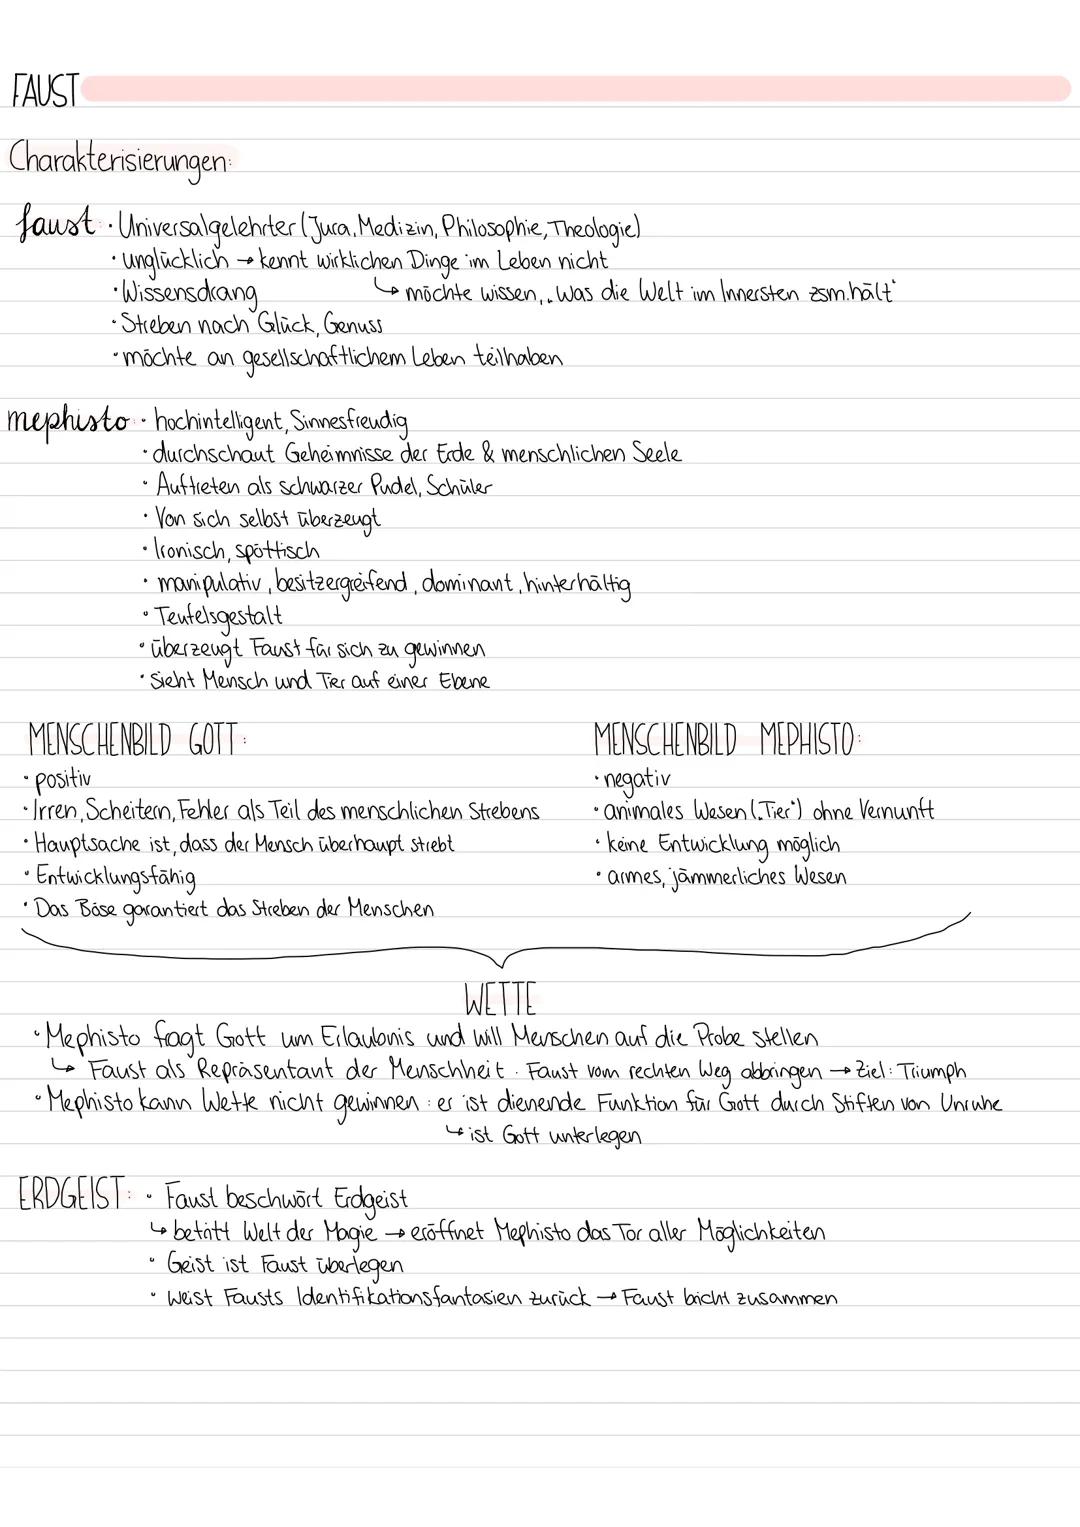 FAUST
Charakterisierungen:
faust: · Universalgelehrter (Jura, Medizin, Philosophie, Theologie)
· unglücklich → kennt wirklichen Dinge im Leben nicht
· Wissensdrang ↳ möchte wissen, „Was die Welt im Innersten zsm.hält“
· Streben nach Glück, Genuss
· möchte an gesellschaftlichem Leben teilhaben
mephisto: · hochintelligent, Sinnesfreudig
· durchschaut Geheimnisse der Erde & menschlichen Seele
· Auftreten als schwarzer Pudel, Schüler
· Von sich selbst überzeugt
· Ironisch, spöttisch
· manipulativ, besitzergreifend, dominant, hinterhältig
· Teufelsgestalt
· überzeugt Faust für sich zu gewinnen
· sieht Mensch und Tier auf einer Ebene
MENSCHENBILD GOTT:
· positiv
· Irren, Scheitern, Fehler als Teil des menschlichen Strebens
· Hauptsache ist, dass der Mensch überhaupt strebt
· Entwicklungsfähig
· Das Böse garantiert das Streben der Menschen
MENSCHENBILD MEPHISTO:
· negativ
· animales Wesen („Tier“) ohne Vernunft
· keine Entwicklung möglich
· armes, jämmerliches Wesen
WETTE
· Mephisto fragt Gott um Erlaubnis und will Menschen auf die Probe stellen
↳ Faust als Repräsentant der Menschheit · Faust vom rechten Weg abbringen → Ziel: Triumph
· Mephisto kann Wette nicht gewinnen: er ist dienende Funktion für Gott durch Stiften von Unruhe
↳ ist Gott unterlegen
ERDGEIST: · Faust beschwört Erdgeist
↳ betritt Welt der Magie → eröffnet Mephisto das Tor aller Möglichkeiten
· Geist ist Faust überlegen
· weist Fausts Identifikationsfantasien zurück → Faust bricht zusammen